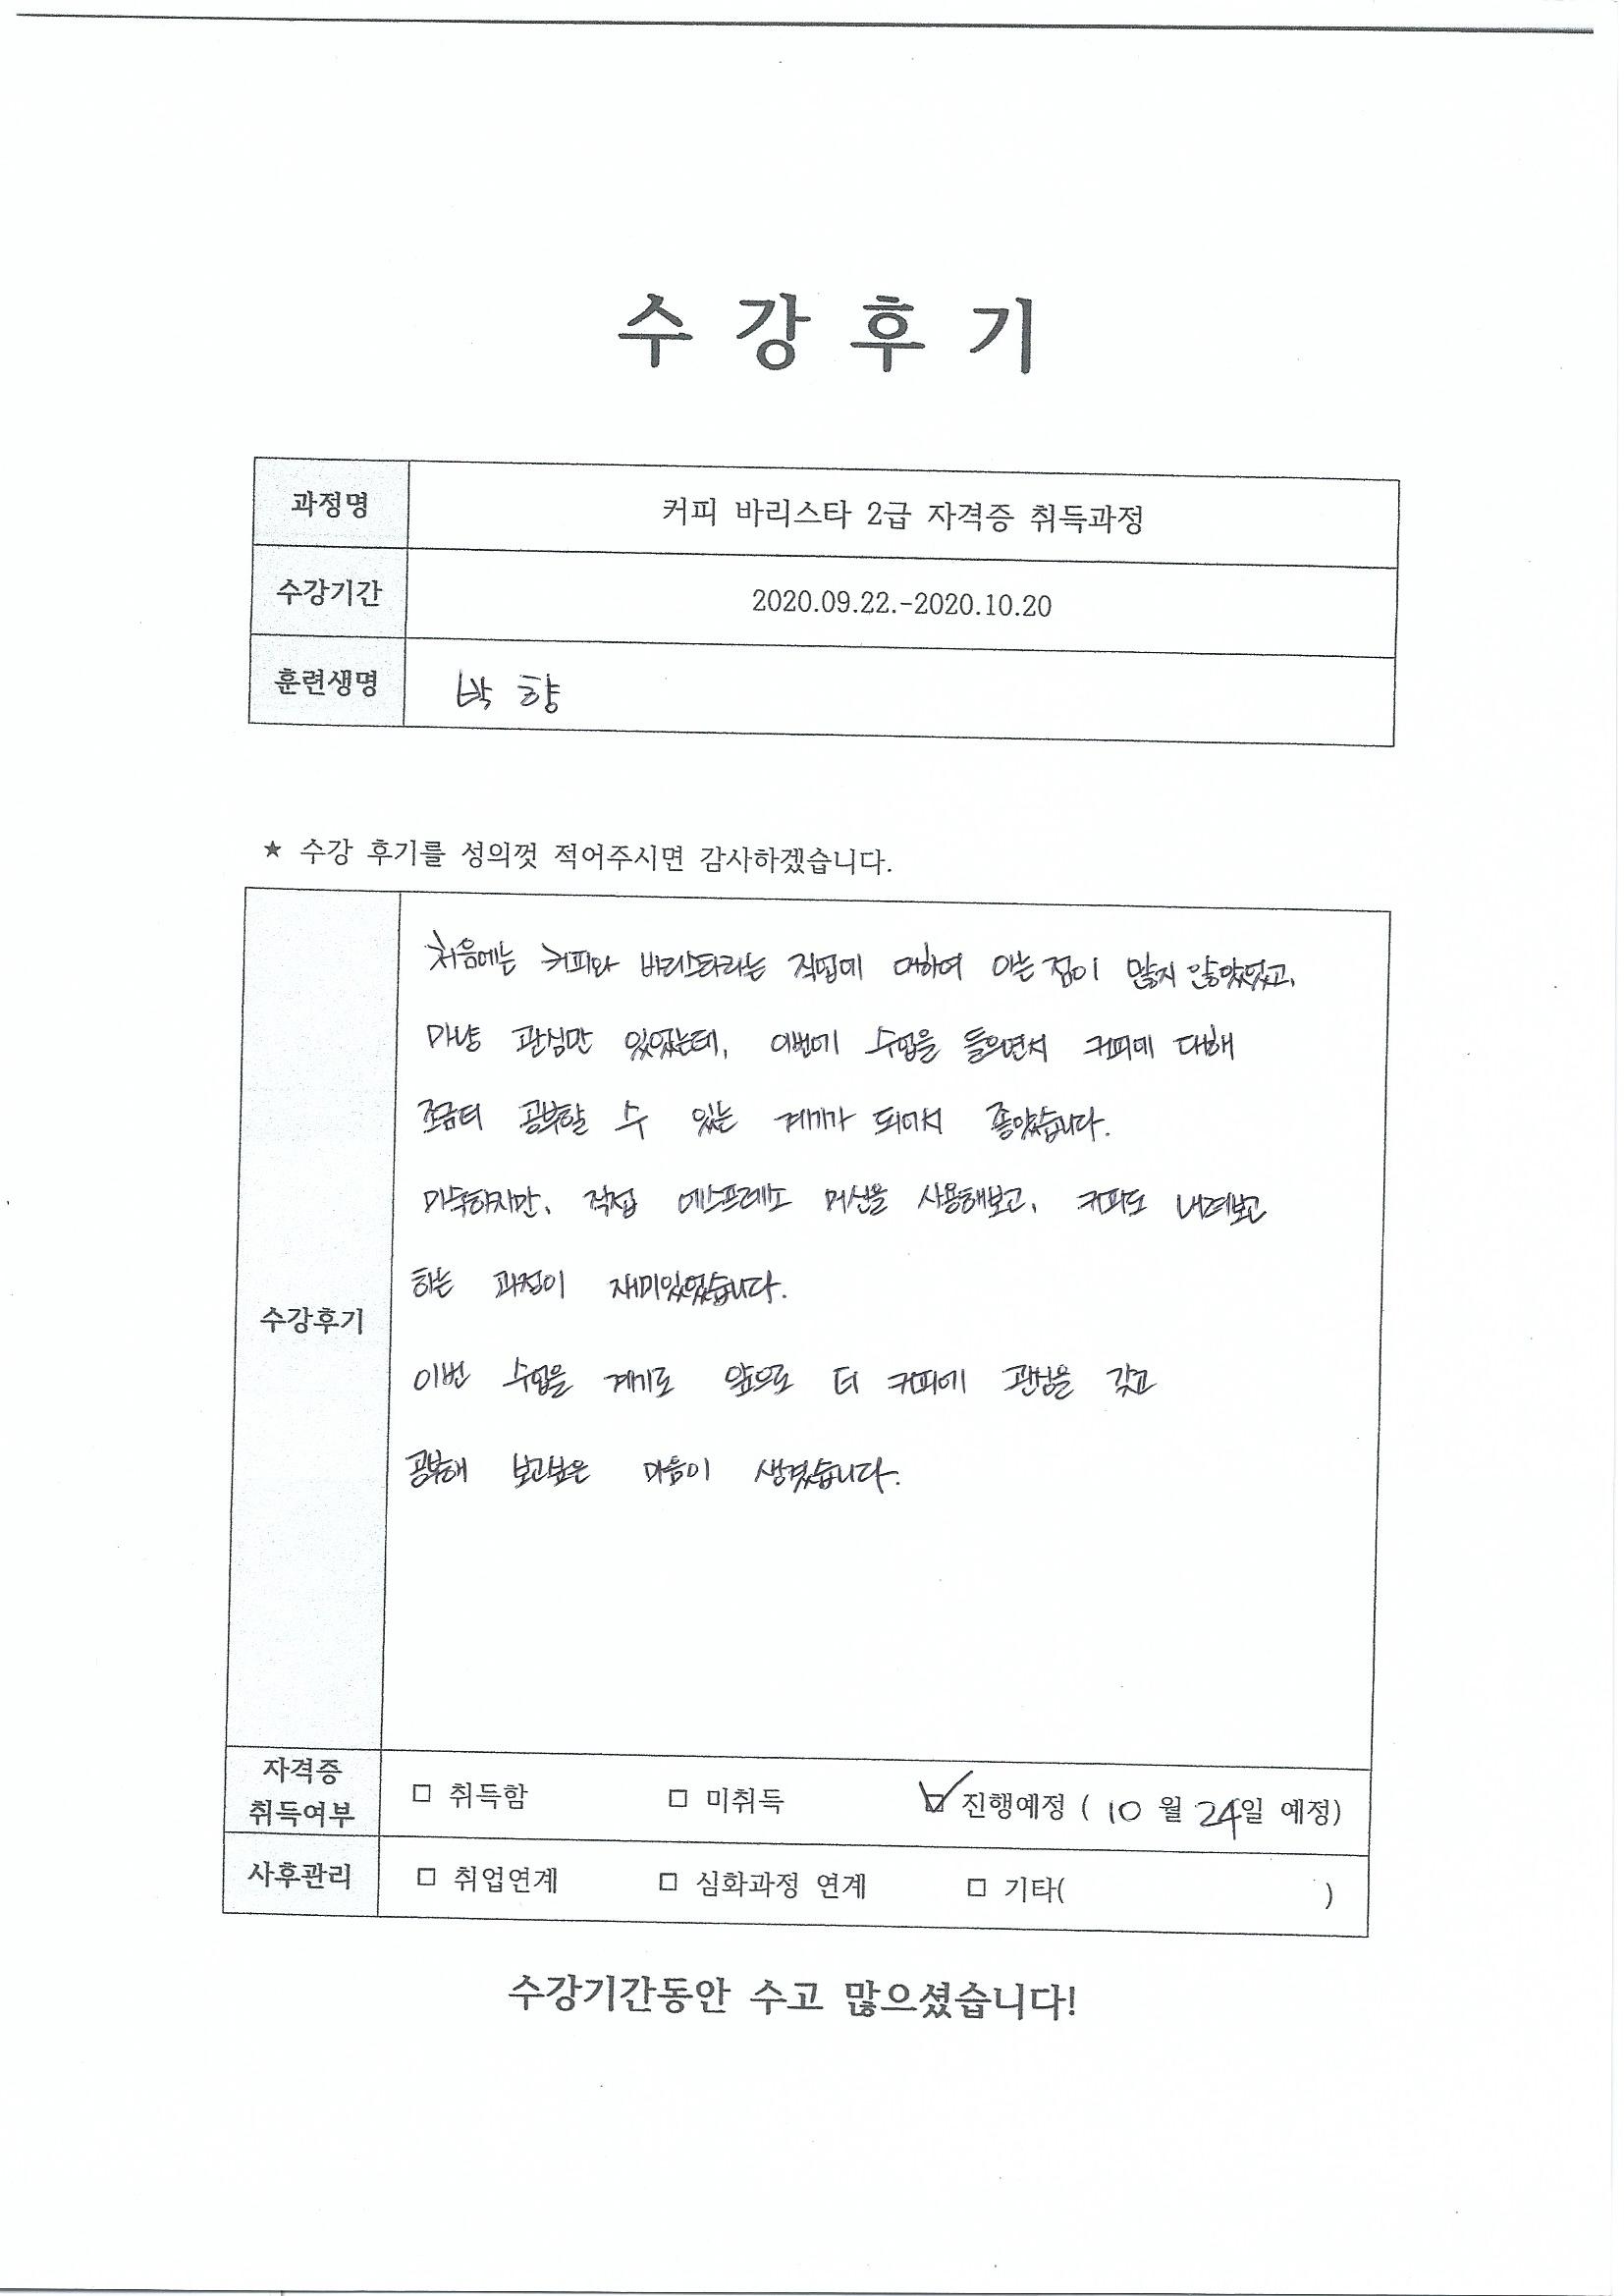 수 강 후 기
과정명 커피 바리스타 2급 자격증 취득과정
수강기간 2020.09.22.-2020.10.20
훈련생명 박 향
★ 수강 후기를 성의껏 적어주시면 감사하겠습니다.
처음에는 커피와 바리스타라는 직업에 대하여 아는 점이 많지 않았었고,
마냥 관심만 있었는데, 이번에 수업을 들으면서 커피에 대해
조금더 공부할 수 있는 계기가 되어서 좋았습니다.
미숙하지만, 직접 에스프레소 머신을 사용해보고, 커피도 내려보고
하는 과정이 재미있었습니다.
수강후기
이번 수업을 계기로 앞으로 더 커피에 관심을 갖고
공부해 보고싶은 마음이 생겼습니다.
자격증
취득여부 □ 취득함 □ 미취득 ☑ 진행예정 ( 10 월 24일 예정)
사후관리 □ 취업연계 □ 심화과정 연계 □ 기타( )
수강기간동안 수고 많으셨습니다!